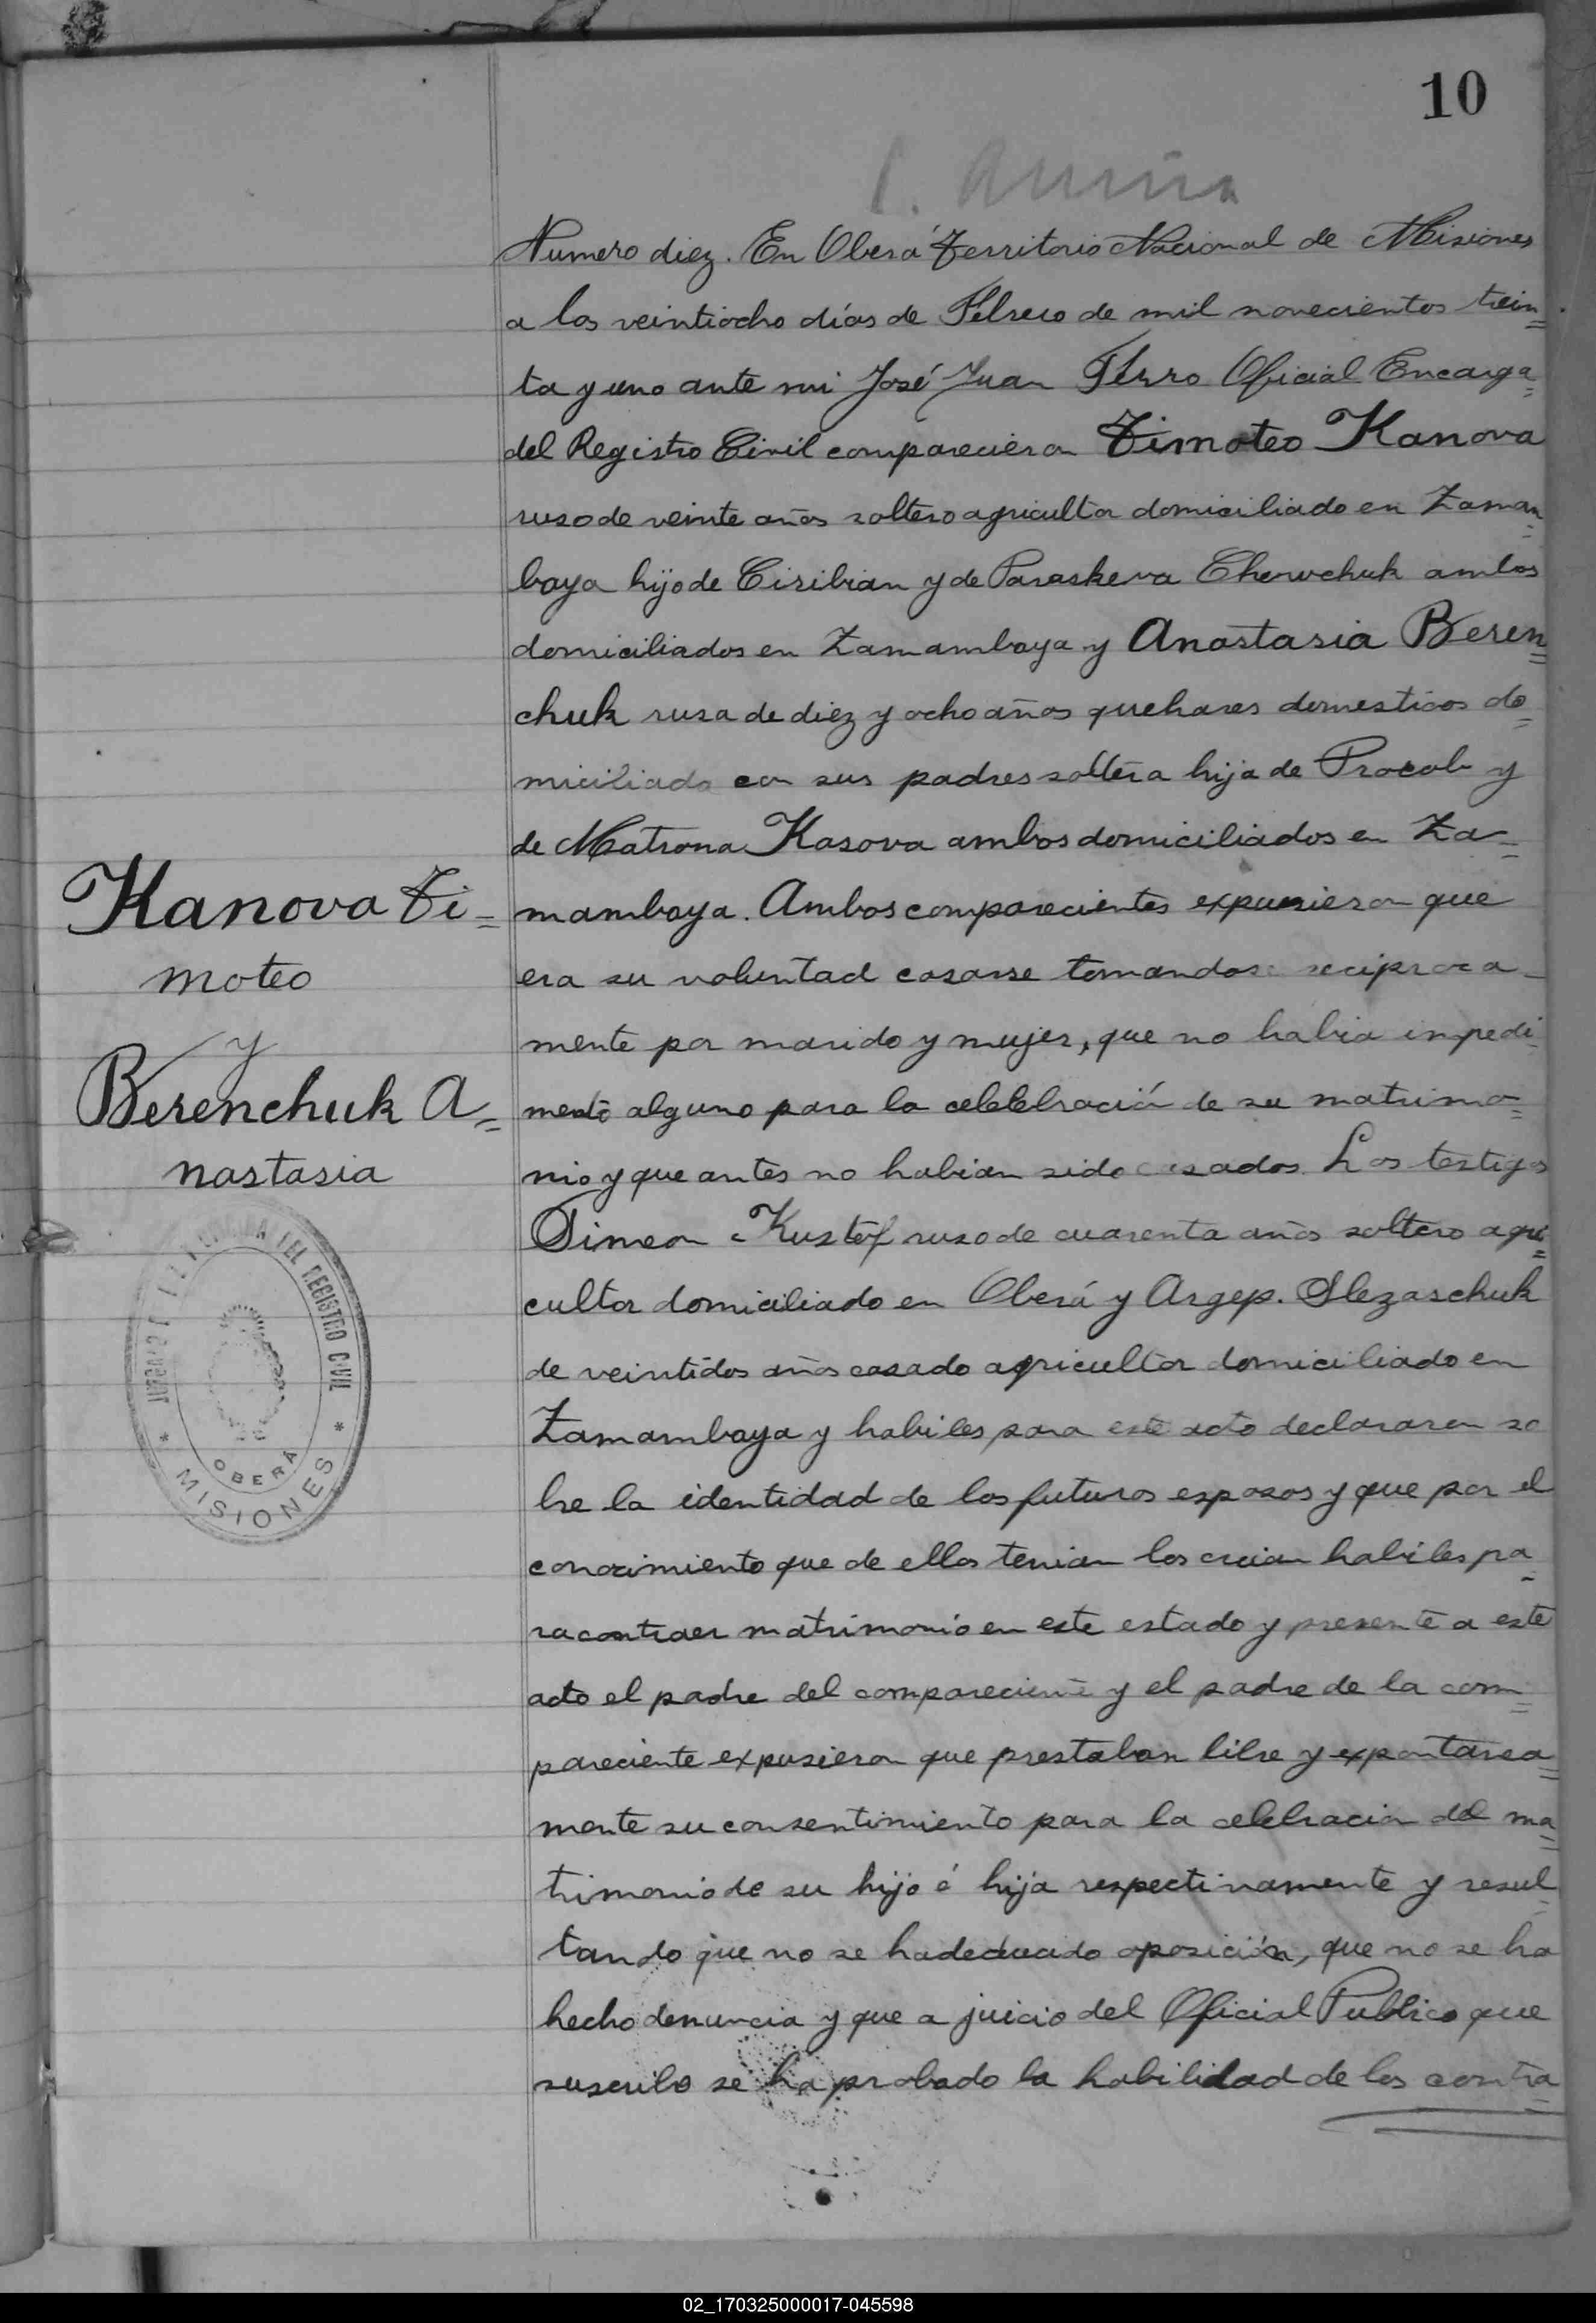 10
Numero diez. En Oberá Territorio Nacional de Misiones
a los veintiocho días de Febrero de mil novecientos trein=
ta y uno ante mi José Juan Ferro Oficial Encarga=
del Registro Civil comparecieron Timoteo Kanova
ruso de veinte años soltero agricultor domiciliado en Zaman=
baya hijo de Ciribian y de Paraskeva Cherwchuk ambos
domiciliados en Zamambaya y Anastasia Beren=
chuk rusa de diez y ocho años quehares domesticos do=
miciliada con sus padres soltera hija de Procob y
de Matrona Kasova ambos domiciliados en Za=
mambaya. Ambos comparecientes expusieron que
era su voluntad casarse tomandose reciproca-
mente por marido y mujer, que no habia impedi-
mento alguno para la celebración de su matrimo=
nio y que antes no habian sido casados. Los testigos
Simeon Kustof ruso de cuarenta años soltero agri=
cultor domiciliado en Oberá y Argep. Slezaschuk
de veintidos años casado agricultor domiciliado en
Zamambaya y habiles para este acto declararon so
bre la identidad de los futuros esposos y que por el
conocimiento que de ellos tenian los creian habiles pa-
ra contraer matrimonio en este estado y presente a este
acto el padre del compareciente y el padre de la com=
pareciente expusieron que prestaban libre y expontanea=
mente su consentimiento para la celebracion del ma=
trimonio de su hijo é hija respectivamente y resul-
tando que no se ha deducido oposición, que no se ha
hecho denuncia y que a juicio del Oficial Publico que
suscribo se ha probado la habilidad de los contra=
Kanova Ti=
moteo
y
Berenchuk A=
nastasia
DEL REGISTRO CIVIL
OBERÁ
* MISIONES *
02_170325000017-045598